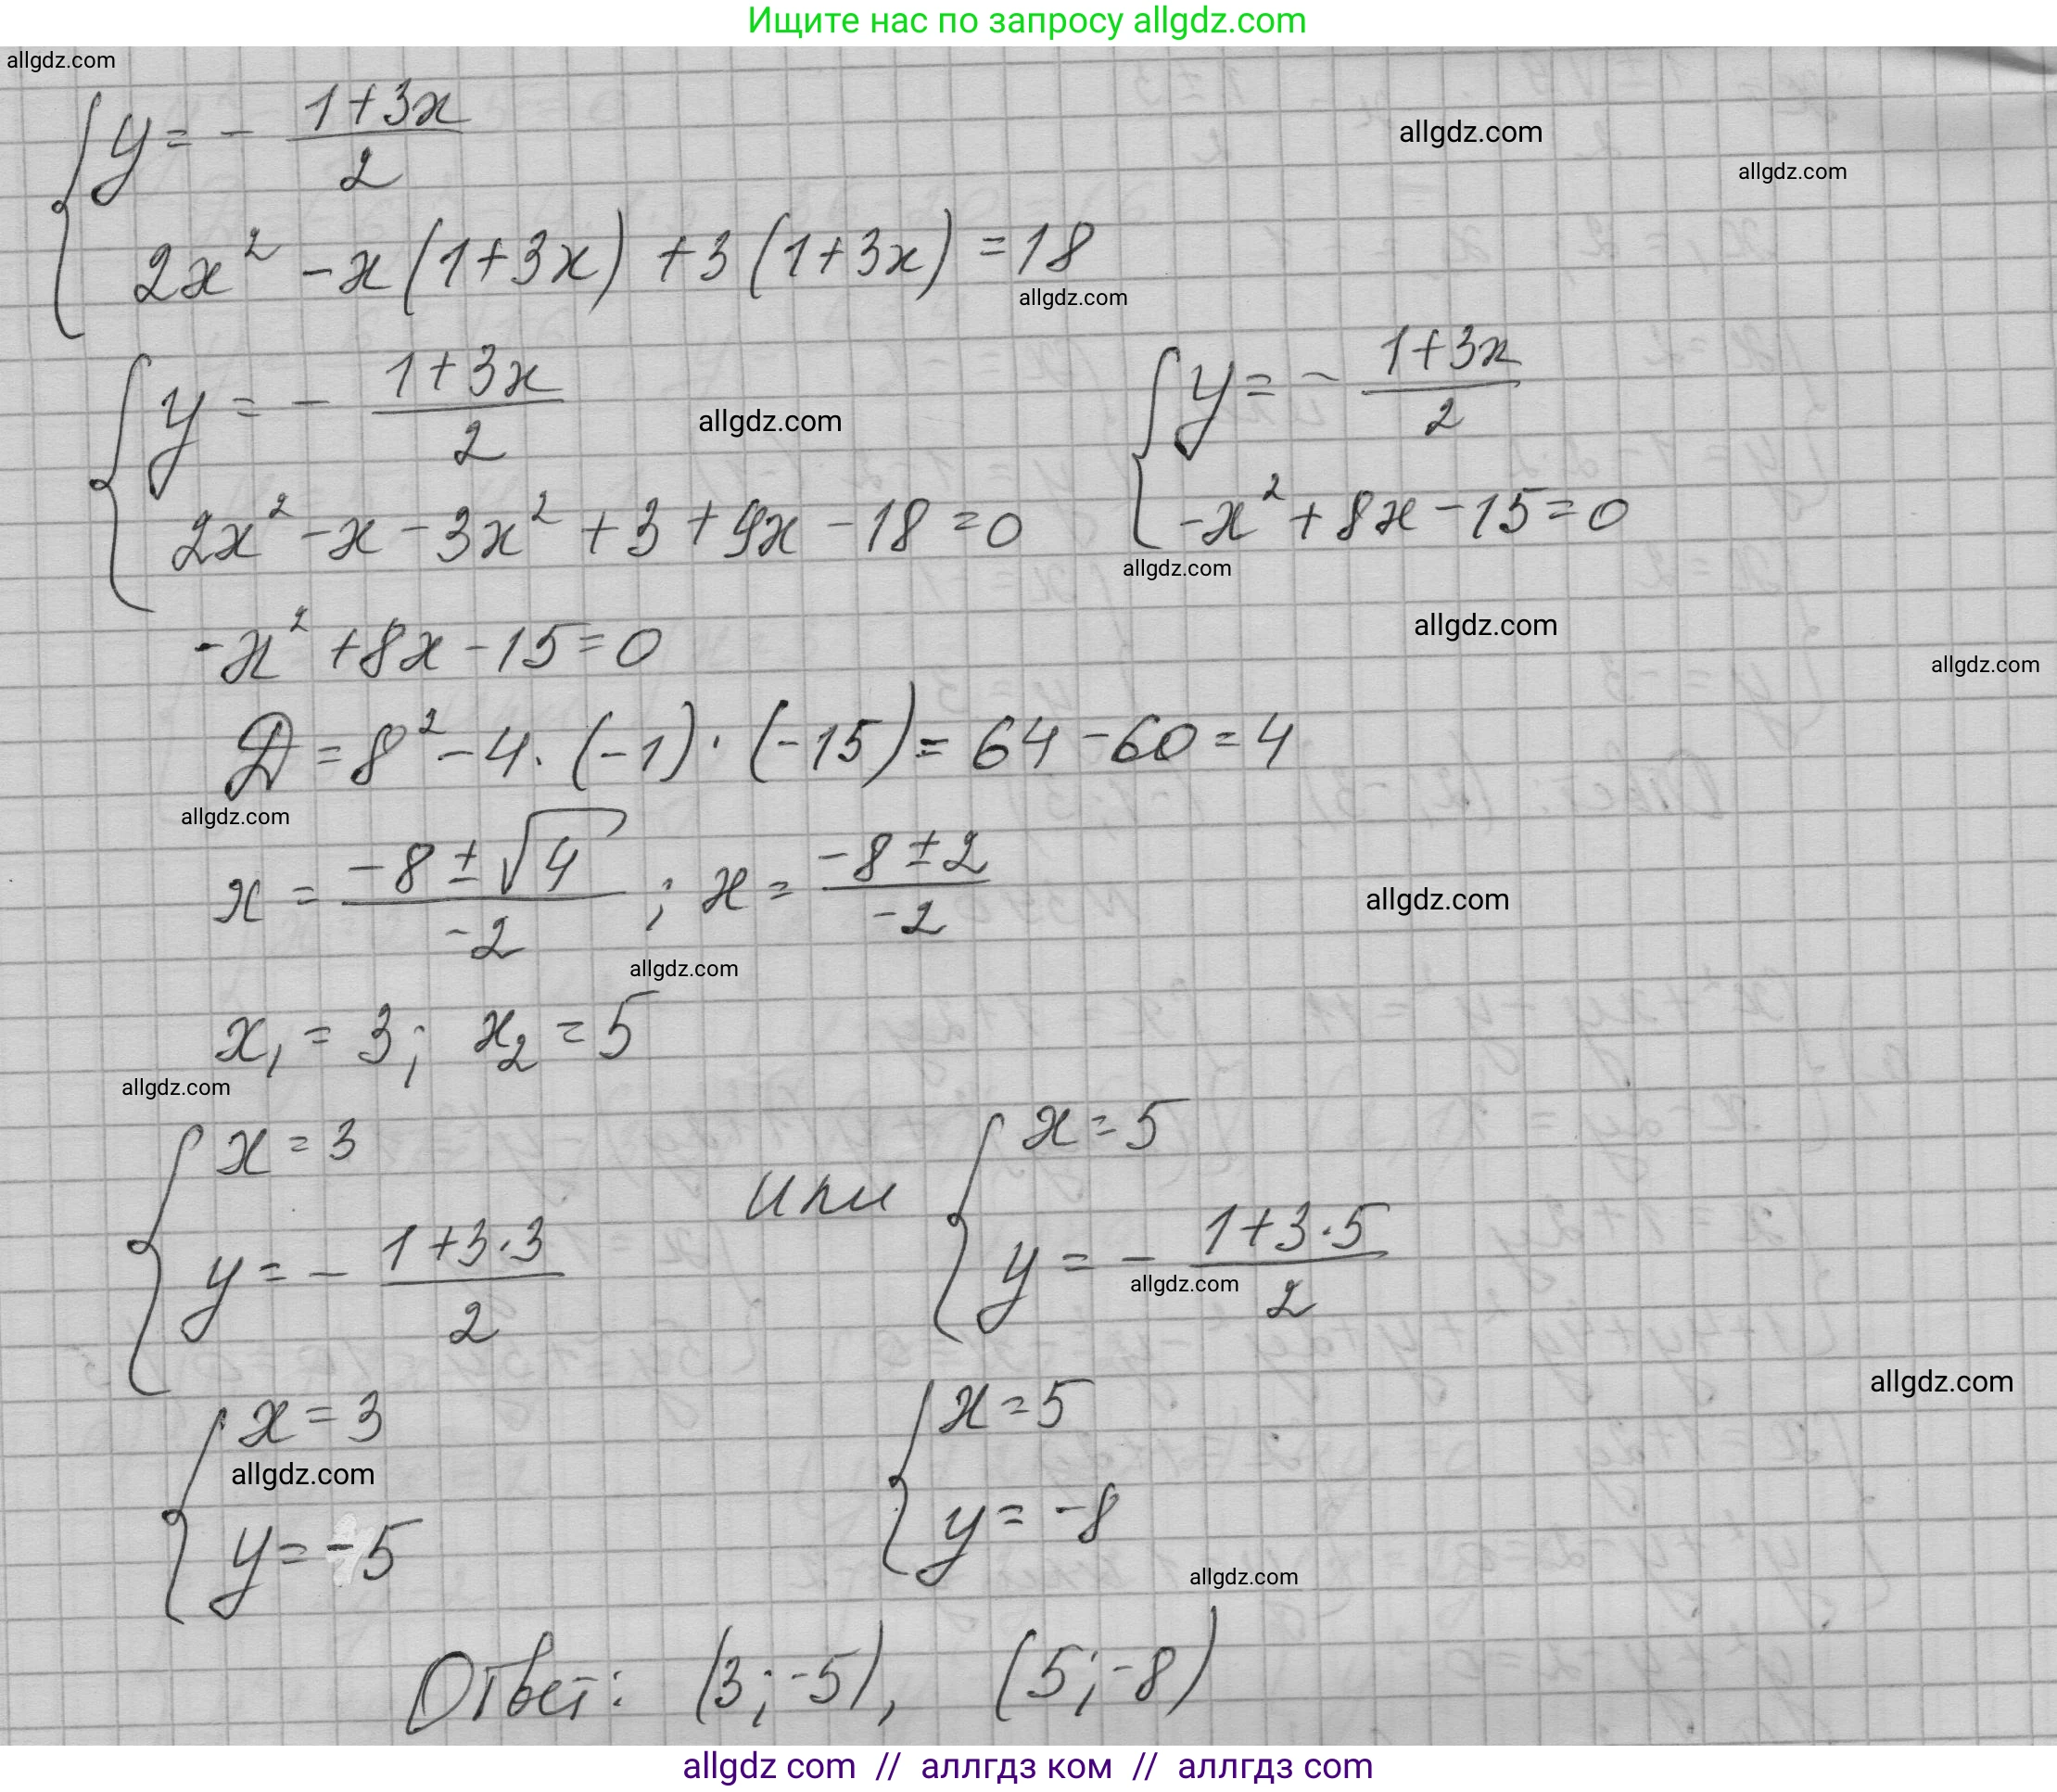 Ищите нас по запросу allgdz.com
allgdz.com
y = - (1+3x)/2
allgdz.com
allgdz.com
2x² - x(1+3x) + 3(1+3x) = 18
allgdz.com
y = - (1+3x)/2
allgdz.com
2x² - x - 3x² + 3 + 9x - 18 = 0
y = - (1+3x)/2
-x² + 8x - 15 = 0
allgdz.com
-x² + 8x - 15 = 0
allgdz.com
allgdz.com
D = 8² - 4 · (-1) · (-15) = 64 - 60 = 4
allgdz.com
x = (-8 ± √4)/(-2) ; x = (-8 ± 2)/(-2)
allgdz.com
allgdz.com
x₁ = 3; x₂ = 5
allgdz.com
x = 3
y = - (1+3·3)/2
или
x = 5
y = - (1+3·5)/2
allgdz.com
allgdz.com
x = 3
allgdz.com
y = -5
x = 5
y = -8
allgdz.com
Ответ: (3; -5), (5; -8)
allgdz com // аллгдз ком // аллгдз com